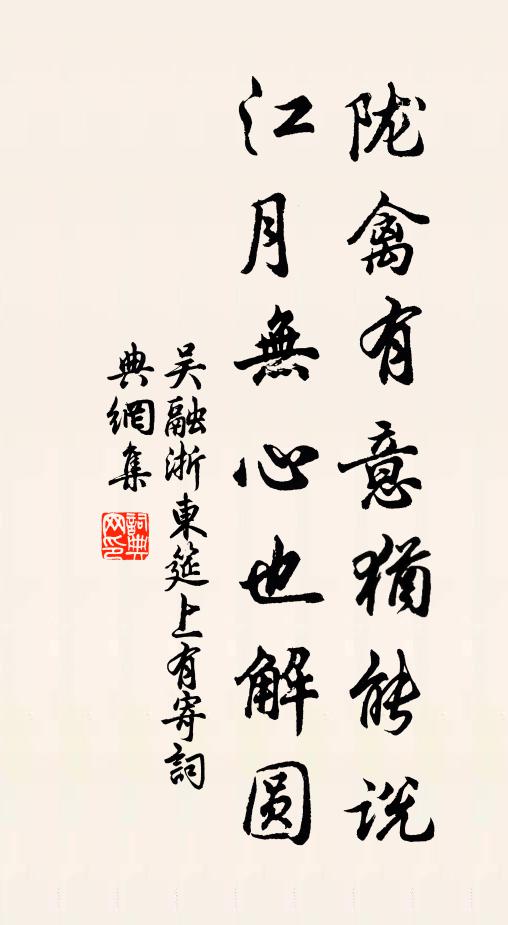 陇禽有意猶能説
江月無心也解圆
吴融浙東筵上有寄詞
典網集
詞典
网印